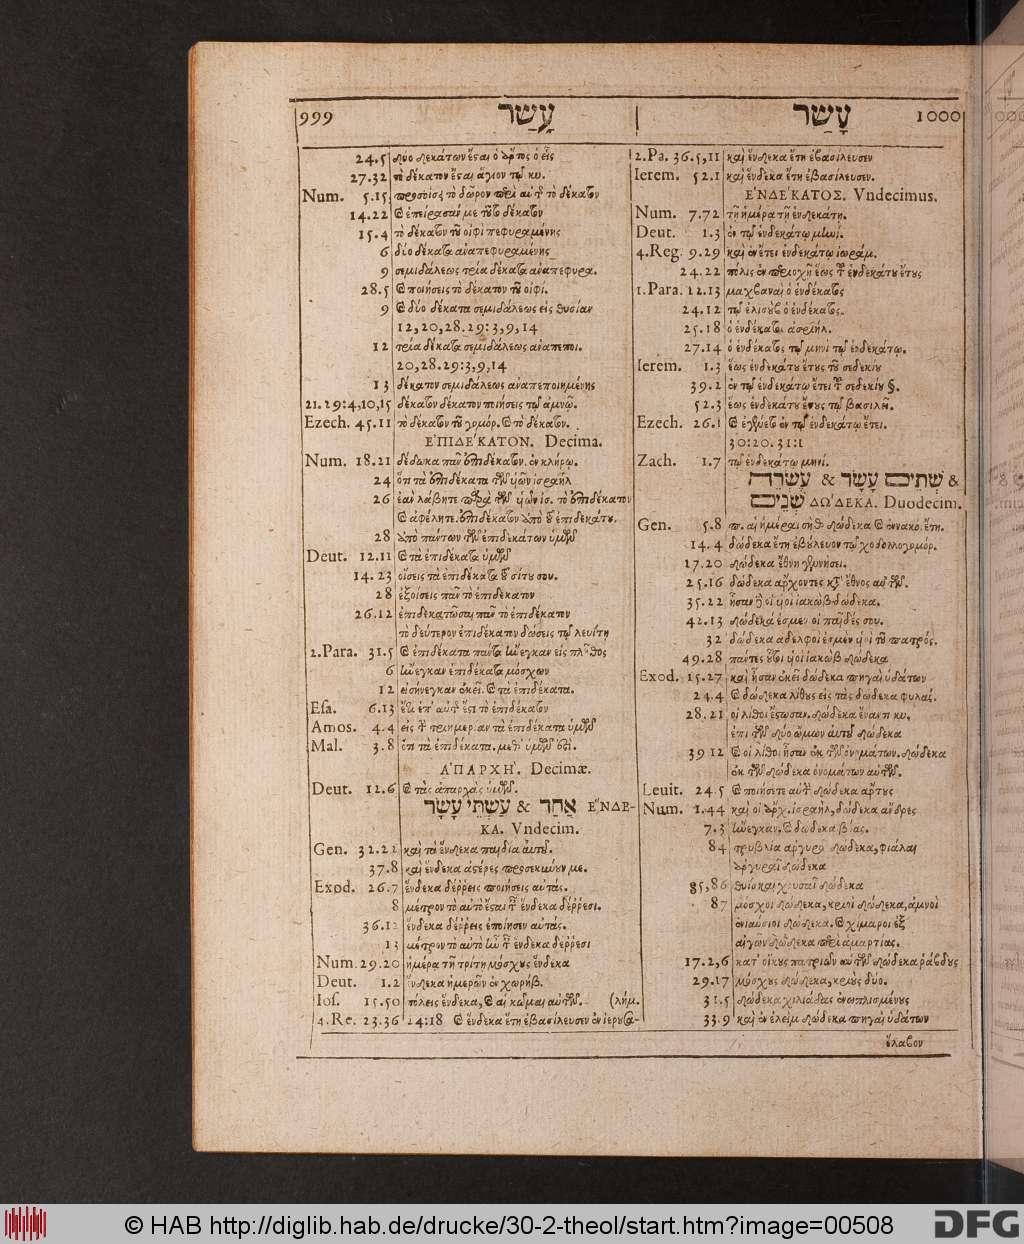 999 עָשַר
24.5 δυο δεκάτων ἔςαι ὁ ἄρτος ὁ εἷς
27.32 τὸ δέκατον ἔςαι ἅγιον τῷ κυ.
Num. 5.15 προσοίσει τὸ δῶρον περὶ αὐτῆς τὸ δέκατον
14.22 καὶ ἐπείρασάν με τοῦτο δέκατον
15.4 τὸ δέκατον τοῦ οἰφὶ πεφυραμένης
6 δύο δέκατα ἀναπεφυραμένης
9 σεμιδάλεως τρία δέκατα ἀναπεφυρα.
28.5 καὶ ποιήσεις τὸ δέκατον τοῦ οἰφί.
9 καὶ δύο δέκατα σεμιδάλεως εἰς θυσίαν
12,20,28.29:3,9,14
12 τρία δέκατα σεμιδάλεως ἀναπεποι.
20,28.29:3,9,14
13 δέκατον σεμιδάλεως ἀναπεποιημένης
21.29:4,10,15 δέκατον δέκατον ποιήσεις τῷ ἀμνῷ.
Ezech. 45.11 τὸ δέκατον τοῦ γομόρ. καὶ τὸ δέκατον.
ἘΠΙΔΕΚΑΤΟΝ. Decima.
Num. 18.21 δέδωκα πᾶν ἐπιδέκατον. ἐν κλήρῳ.
24 ὅτι τὰ ἐπιδέκατα τῶν υἱῶν ἰσραήλ
26 ἐὰν λάβητε παρὰ τῶν υἱῶν ἰσ. τὸ ἐπιδέκατον
καὶ ἀφέλητε. ἐπιδέκατον ἀπὸ τοῦ ἐπιδεκάτου.
28 ἀπὸ πάντων τῶν ἐπιδεκάτων ὑμῶν
Deut. 12.11 καὶ τὰ ἐπιδέκατα ὑμῶν
14.23 οἴσεις τὰ ἐπιδέκατα τοῦ σίτου σου.
28 ἐξοίσεις πᾶν τὸ ἐπιδέκατον
26.12 ἐπιδεκατῶσαι πᾶν τὸ ἐπιδέκατον
τὸ δεύτερον ἐπιδέκατον δώσεις τῷ λευίτῃ
2.Para. 31.5 καὶ ἐπιδέκατα πάντα ἤνεγκαν εἰς πλῆθος
6 ἤνεγκαν ἐπιδέκατα μόσχων
12 εἰσήνεγκαν ἐκεῖ. καὶ τὰ ἐπιδέκατα.
Esa. 6.13 ἔτι ἐπ' αὐτῆς ἔςι τὸ ἐπιδέκατον
Amos. 4.4 εἰς τὴν τριημερίαν τὰ ἐπιδέκατα ὑμῶν
Mal. 3.8 ὅτι τὰ ἐπιδέκατα. μεθ' ὑμῶν ἐςί.
ἈΠΑΡΧΉ. Decimæ.
Deut. 12.6 καὶ τὰς ἀπαρχὰς ὑμῶν.
אַחַד & עַשְׁתֵּי עָשָׂר ἝΝΔΕ-
ΚΑ. Vndecim.
Gen. 32.22 καὶ τὰ ἕνδεκα παιδία αὐτοῦ.
37.8 καὶ ἕνδεκα ἀςέρες προσεκύνουν με.
Exod. 26.7 ἕνδεκα δέρρεις ποιήσεις αὐτάς.
8 μέτρον τὸ αὐτὸ ἔςαι ταῖς ἕνδεκα δέρρεσι.
36.12 ἕνδεκα δέρρεις ἐποίησεν αὐτάς.
13 μέτρον τὸ αὐτὸ ἦν ταῖς ἕνδεκα δέρρεσι
Num. 29.20 ἡμέρᾳ τῇ τρίτῃ μόσχους ἕνδεκα
Deut. 1.2 ἕνδεκα ἡμερῶν ἐν χωρήβ.
Ios. 15.50 πόλεις ἕνδεκα, καὶ αἱ κῶμαι αὐτῶν. (λήμ.
4.Re. 23.36 24:18 καὶ ἕνδεκα ἔτη ἐβασίλευσεν ἐν ἱερουσα-
עָשַר 1000
2.Pa. 36.5,11 καὶ ἕνδεκα ἔτη ἐβασίλευσεν
Ierem. 52.1 καὶ ἕνδεκα ἔτη ἐβασίλευσεν.
ἙΝΔΕΚΑΤΟΣ. Vndecimus.
Num. 7.72 τῇ ἡμέρᾳ τῇ ἑνδεκάτῃ.
Deut. 1.3 ἐν τῷ ἑνδεκάτῳ μηνί.
4.Reg. 9.29 καὶ ἐν ἔτει ἑνδεκάτῳ ἰωράμ.
24.22 πόλις ἐν περιοχῇ ἕως τοῦ ἑνδεκάτου ἔτους
1.Para. 12.13 μαχβαναὶ ὁ ἑνδέκατος
24.12 τῷ ἐλισοὺβ ὁ ἑνδέκατος.
25.18 ὁ ἑνδέκατος ἀσριήλ.
27.14 ὁ ἑνδέκατος τῷ μηνὶ τῷ ἑνδεκάτῳ.
Ierem. 1.3 ἕως ἑνδεκάτου ἔτους τοῦ σεδεκίου
39.2 ἐν τῷ ἑνδεκάτῳ ἔτει τοῦ σεδεκίου §.
52.3 ἕως ἑνδεκάτου ἔτους τῷ βασιλεῖ.
Ezech. 26.1 καὶ ἐγένετο ἐν τῷ ἑνδεκάτῳ ἔτει.
30:20. 31:1
Zach. 1.7 τῷ ἑνδεκάτῳ μηνί.
שְׁתֵּים עָשָׂר & עֶשְׂרֵה &
שְׁנֵים ΔΩ'ΔΕΚΑ. Duodecim.
Gen. 5.8 π. αἱ ἡμέραι σὴθ δώδεκα καὶ ἐννακό. ἔτη.
14.4 δώδεκα ἔτη ἐδούλευον τῷ χοδολλογομόρ.
17.20 δώδεκα ἔθνη γεννήσει.
25.16 δώδεκα ἄρχοντες κατὰ ἔθνος αὐτῶν.
35.22 ἦσαν δὲ οἱ υἱοὶ ἰακὼβ δώδεκα.
42.13 δώδεκά ἐσμεν οἱ παῖδές σου.
32 δώδεκα ἀδελφοί ἐσμὲν υἱοὶ τοῦ πατρός.
49.28 πάντες οὗτοι υἱοὶ ἰακὼβ δώδεκα
Exod. 15.27 καὶ ἦσαν ἐκεῖ δώδεκα πηγαὶ ὑδάτων
24.4 καὶ δώδεκα λίθους εἰς τὰς δώδεκα φυλάς.
28.21 οἱ λίθοι ἔςωσαν. δώδεκα ἔναντι κυ.
ἐπὶ τῶν δύο ὤμων αὐτοῦ δώδεκα
39.12 καὶ οἱ λίθοι ἦσαν ἐκ τῶν ὀνομάτων. δώδεκα
ἐκ τῶν δώδεκα ὀνομάτων αὐτῶν.
Leuit. 24.5 καὶ ποιήσετε αὐτὴν δώδεκα ἄρτους
Num. 1.44 καὶ οἱ ἄρχ. ἰσραήλ, δώδεκα ἄνδρες
7.3 ἤνεγκαν. καὶ δώδεκα βόας.
84 τρυβλία ἀργυρᾶ δώδεκα, φιάλαι
ἀργυραῖ δώδεκα
85,86 θυίσκαι χρυσαῖ δώδεκα
87 μόσχοι δώδεκα, κριοὶ δώδεκα, ἀμνοὶ
ἐνιαύσιοι δώδεκα. καὶ χίμαροι ἐξ
αἰγῶν δώδεκα περὶ ἁμαρτίας.
17.2,6 κατ' οἴκους πατριῶν αὐτῶν δώδεκα ῥάβδους
29.17 μόσχους δώδεκα, κριοὺς δύο.
31.5 δώδεκα χιλιάδας ἐνωπλισμένους
33.9 καὶ ἐν ἐλεὶμ δώδεκα πηγαὶ ὑδάτων
ἔλαβον
© HAB http://diglib.hab.de/drucke/30-2-theol/start.htm?image=00508
DFG